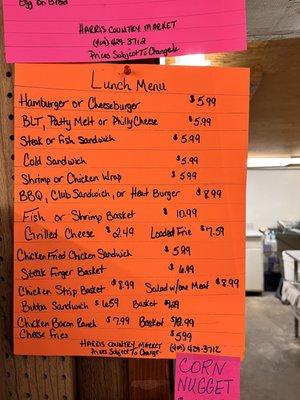 Egg on Bread
HARRIS COUNTRY MARKET
(409) 429-3712
Prices Subject To Change
Lunch Menu
Hamburger or Cheeseburger $5.99
BLT, Patty Melt or Philly Cheese $5.99
Steak or Fish Sandwich $5.99
Cold Sandwich $5.99
Shrimp or Chicken Wrap $5.99
BBQ, Club Sandwich, or Heat Burger $8.99
Fish or Shrimp Basket $10.99
Grilled Cheese $2.49 Loaded Frie $7.59
Chicken Fried Chicken Sandwich $5.89
Steak Finger Basket $6.99
Chicken Strip Basket $8.99 Salad w/one Meat $8.99
Bubba Sandwich $6.59 Basket
Chicken Bacon Ranch $7.99 Basket
Cheese Fries $5.99
HARRIS COUNTRY MARKET
Prices Subject To Change (409) 429-3712
CORN
NUGGET